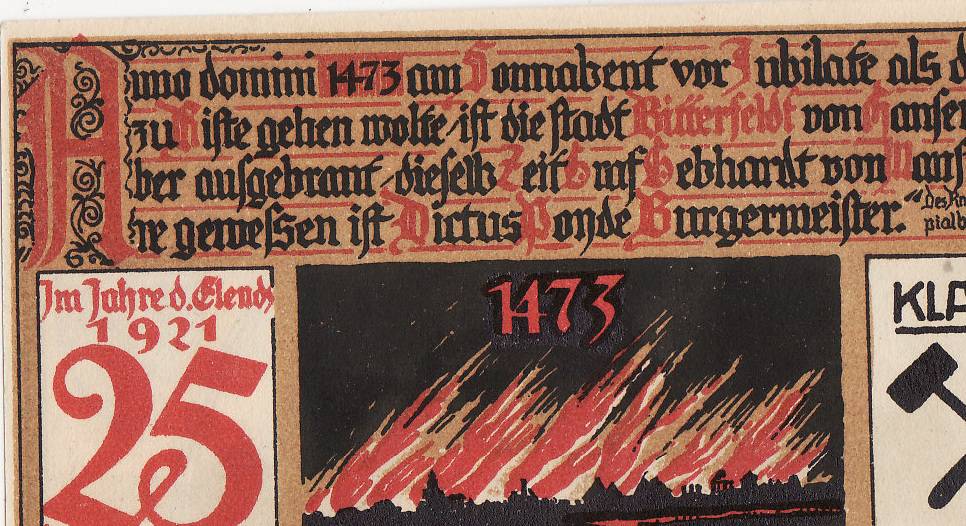 Anno domini 1473 am Sonnabent vor Jubilate als d
zu Riste gehen wolte, ist die stadt Bitterfeldt von Hansen
ber ausgebrant, dieselb Zeit Graf Gebhardt von Mansf
re gewessen ist Dictus Ponde Burgermeister."
Im Jahre d. Elends
1921
25
1473
KLA